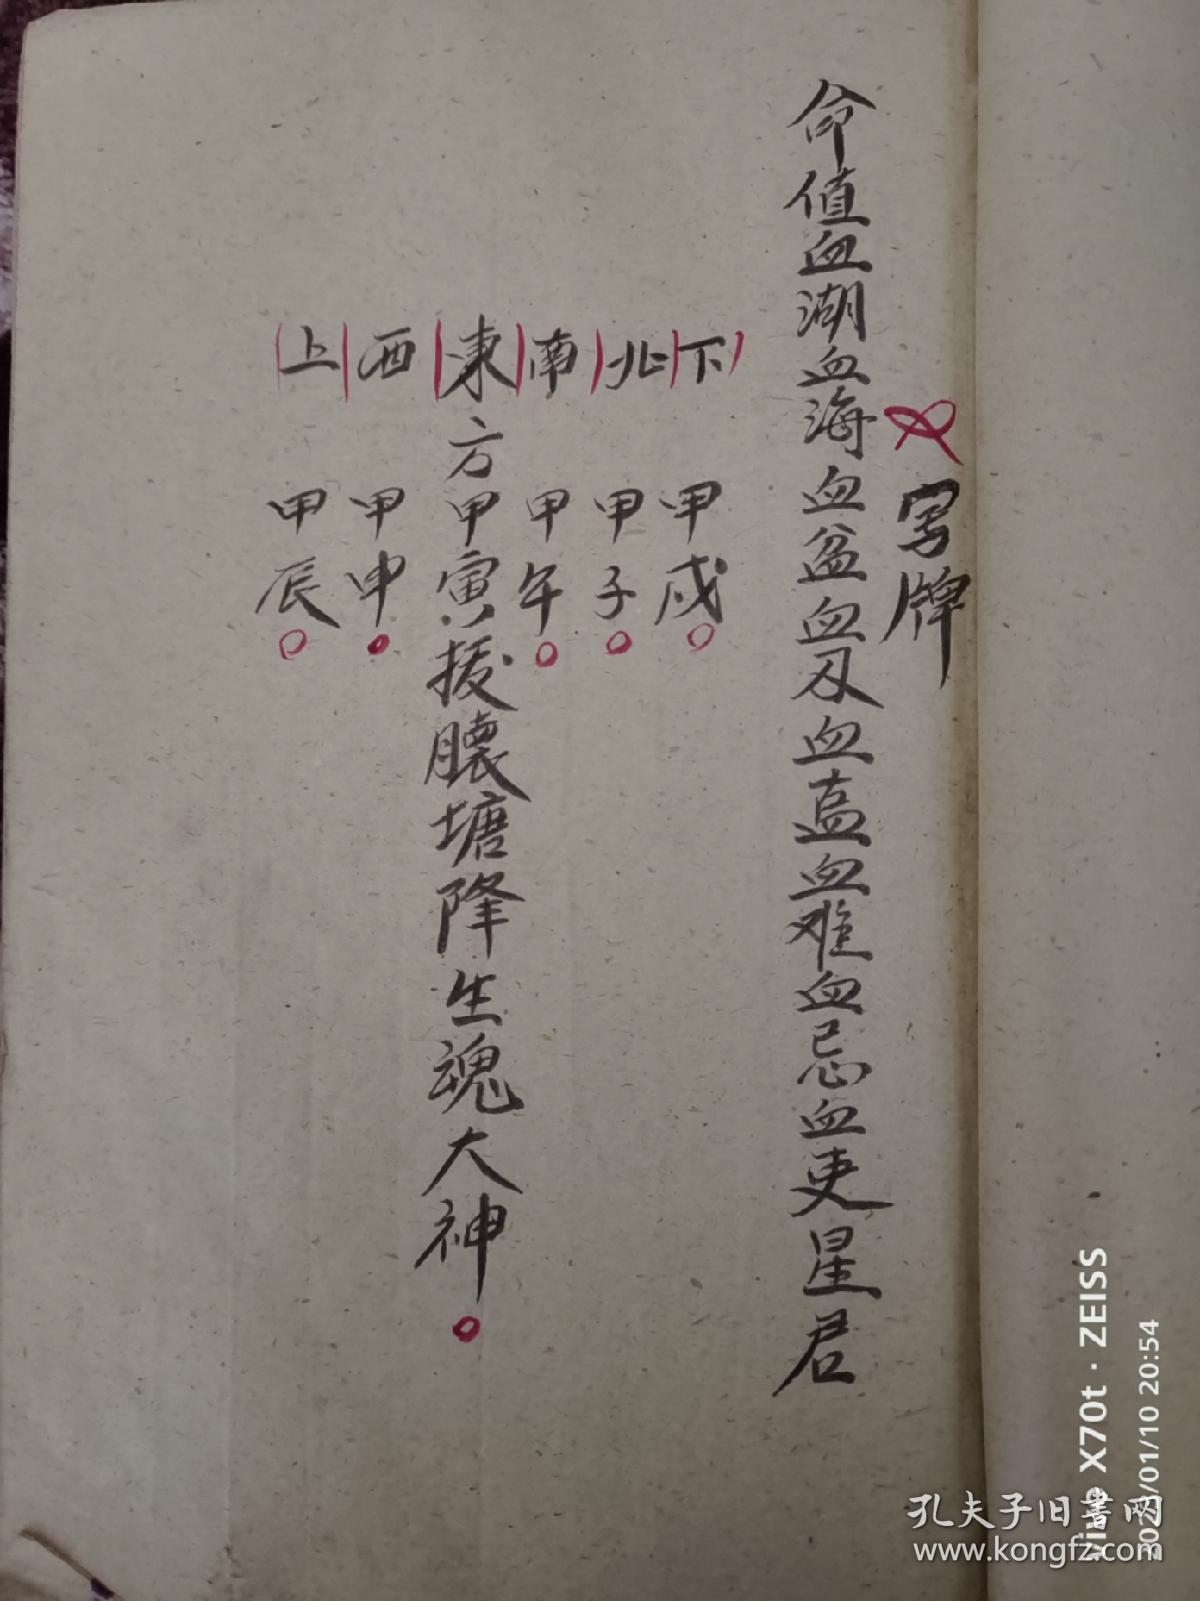 写牌
命值血湖血海血盆血刄血血难血忌血吏星君
下甲戌
北甲子
南甲午
東方甲寅援塘降生魂大神
西甲申
上甲辰
vivo X70t · ZEISS
2023/01/10 20:54
孔夫子旧書网
www.kongfz.com